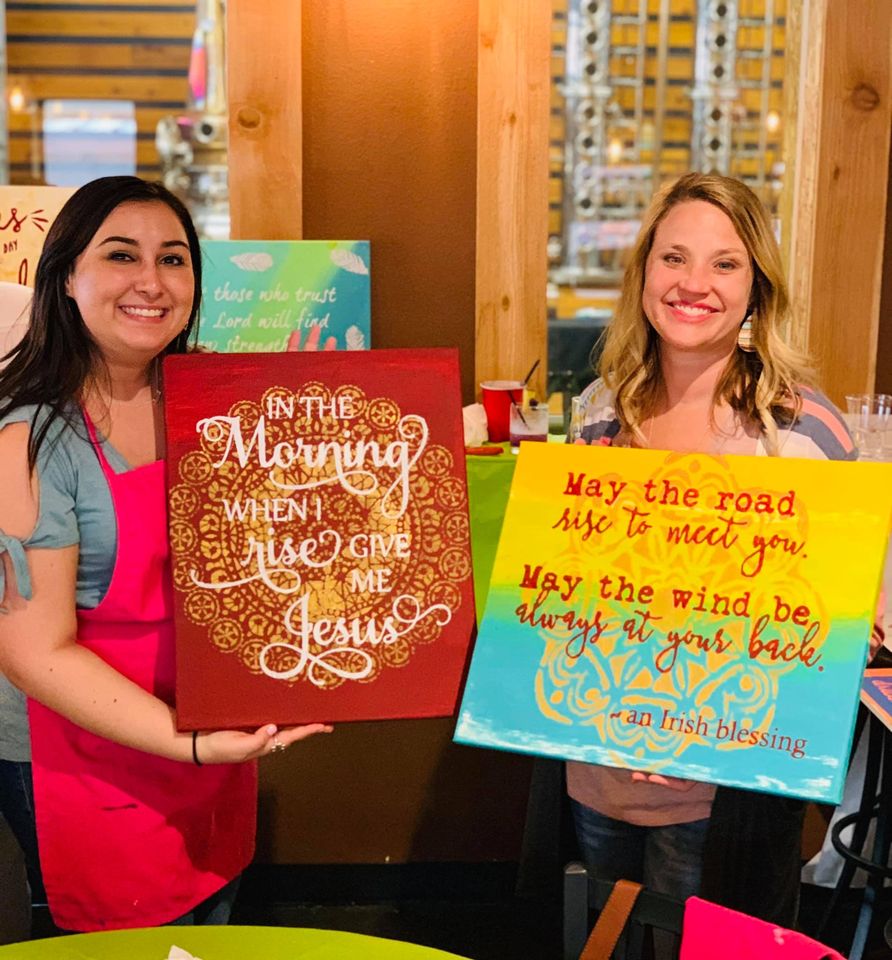 s
DAY
those who trust
Lord will find
strength
IN THE
Morning
WHEN I
rise GIVE
ME
Jesus
May the road
rise to meet you.
May the wind be
always at your back.
~ an Irish blessing